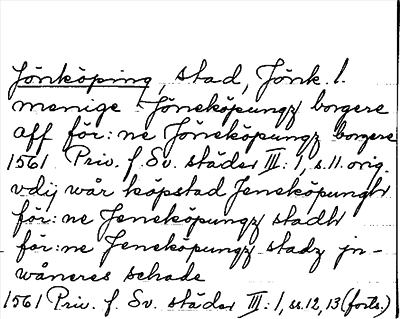 Jönköping, stad, Jönk. l.
menige Jöneköpungz borgere
aff för:ne Jöneköpungz borgere
1561 Priv. f. Sv. städer III:1, s.11. orig.
vdij wår köpstad Jeneköpungh
för:ne Jeneköpungz stadh
för:ne Jeneköpungz stadz jn-
wåneres schade
1561 Priv. f. Sv. städer III:1, ss.12, 13 (forts.)